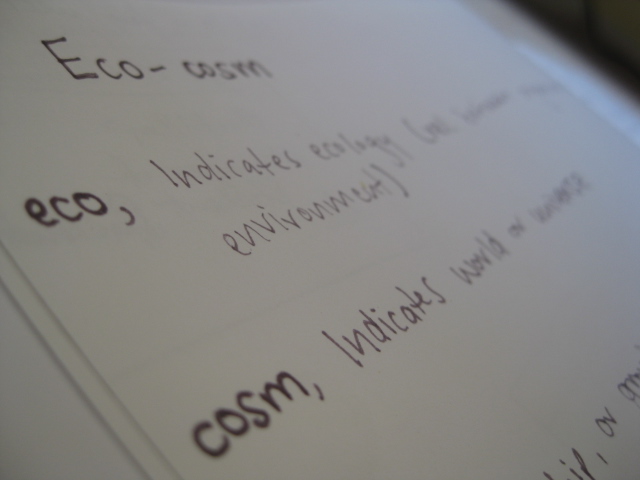 Eco-cosm
eco, Indicates ecology (rel. between
environment)
cosm, Indicates world or universe
or